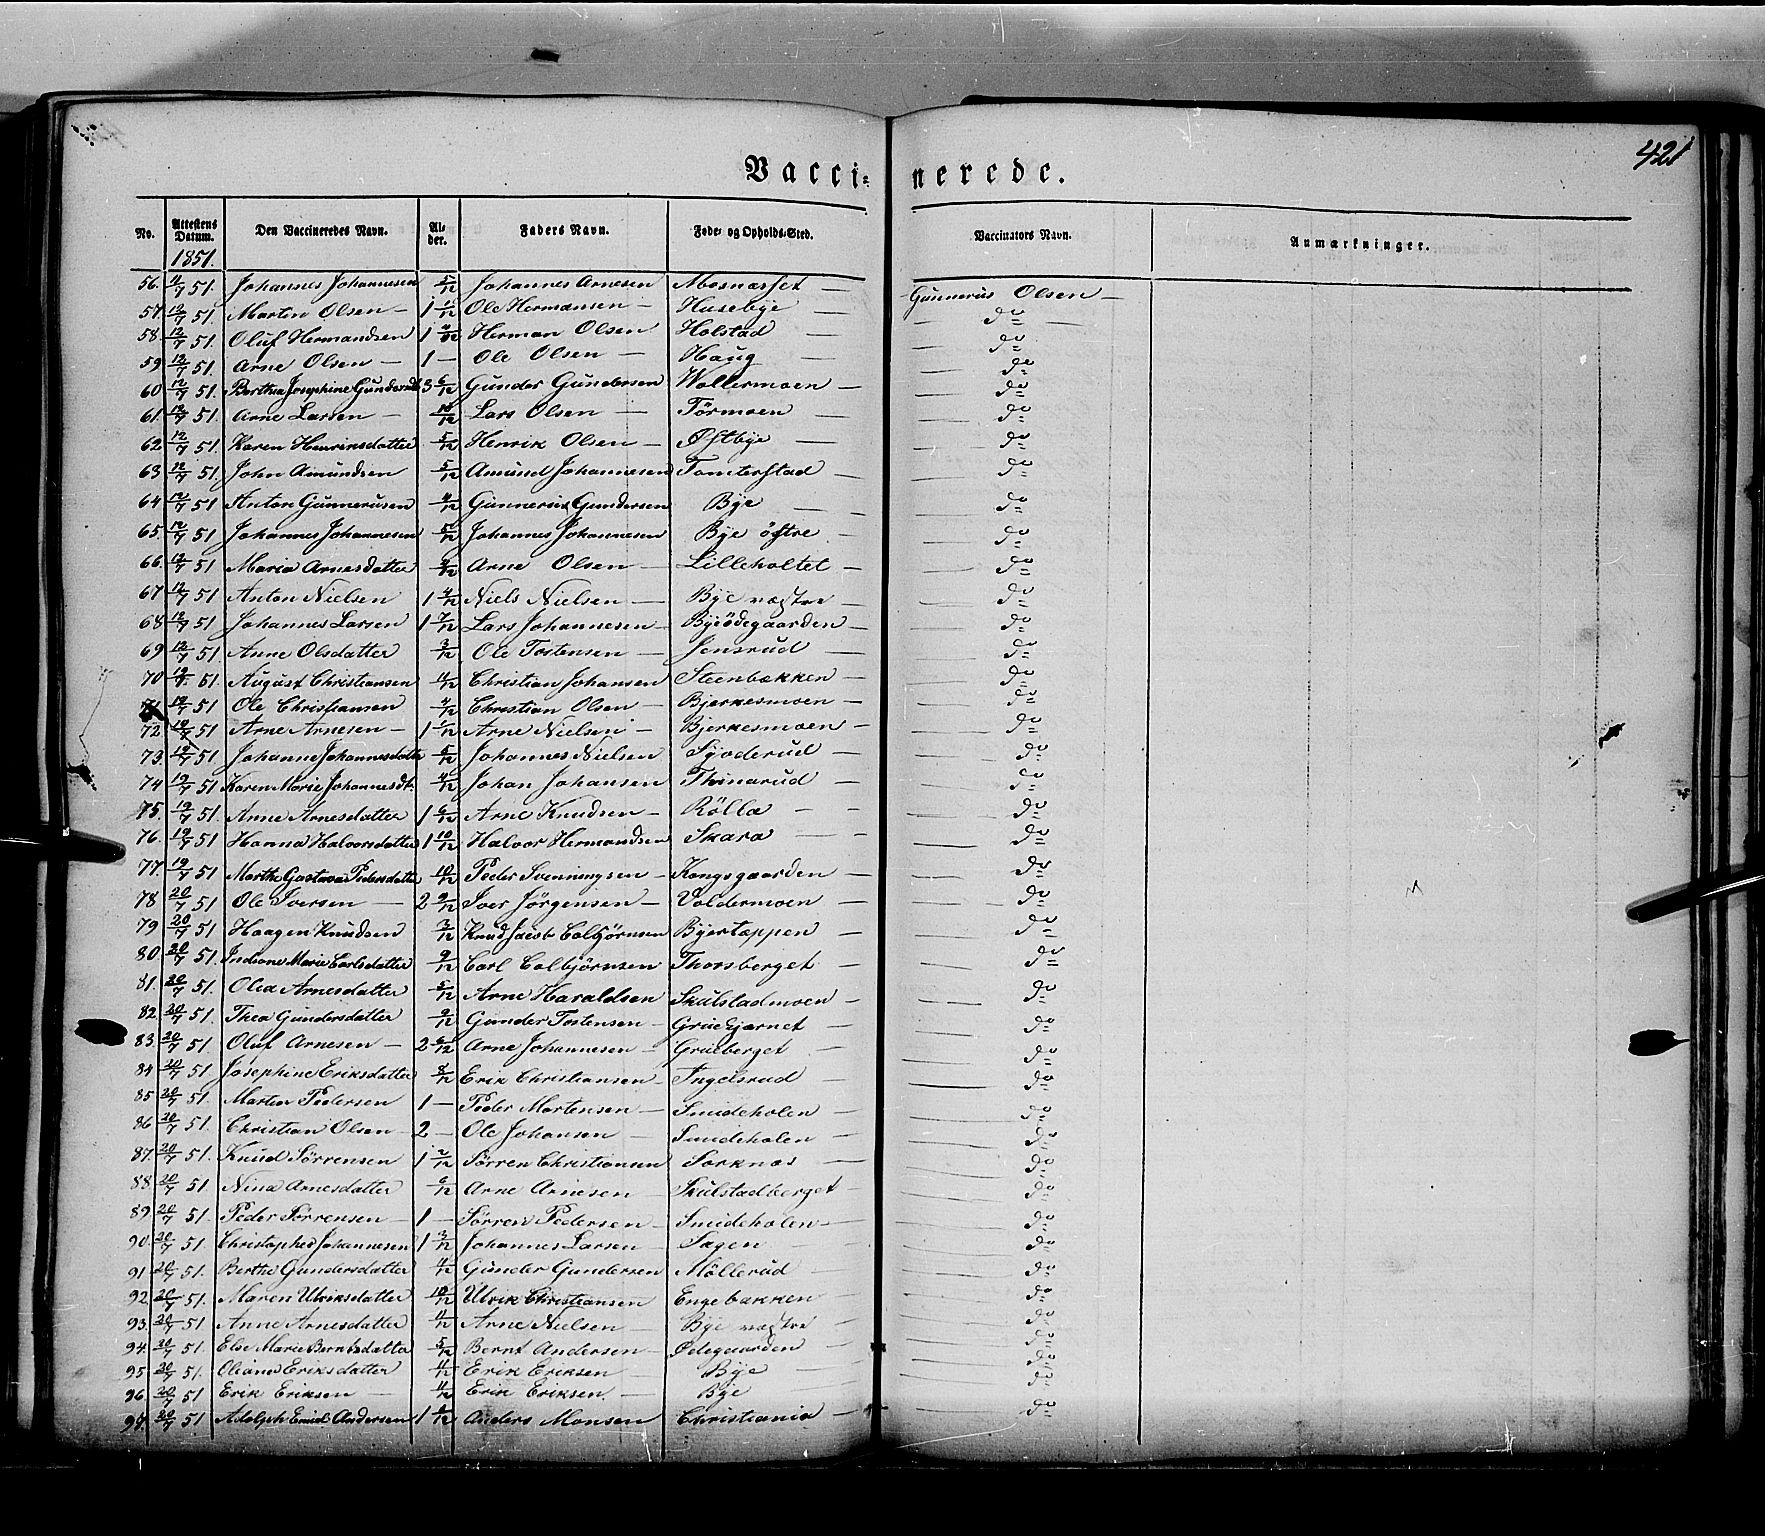 421
Vaccinerede.
No. Attestens Datum. Den Vaccineredes Navn. Alder. Faders Navn. Føde- og Opholds-Sted. Vaccinators Navn. Anmærkninger.
1851.
56. 11/7 51. Johannes Johannesen 5/12 Johannes Arnesen Mosnæsset — Gunnerus Olsen —
57. 12/7 51. Martin Olsen — 1 Ole Hermansen — Husebye — — do —
58. 12/7 51. Oluf Hermandsen 1 Herman Olsen Holstad — do
59. 12/7 51. Arne Olsen — 1 — Ole Olsen — Haug — — do
60. 12/7 51. Berthea Josephine Gundersdt 3 6/12 Gunder Gundersen Wollermoen — — do
61. 12/7 51. Arne Larsen — 10/12 Lars Olsen — Törmoen — — do
62. 12/7 51. Karen Henriksdatter 5/12 Henrik Olsen — Østbye — — do
63. 12/7 51. John Amundsen 5/12 Amund Johannesen Tomterstad — — do
64. 12/7 51. Anton Gunnerusen 4/12 Gunnerus Gundersen Bye — — do
65. 12/7 51 Johannes Johannesen 5/12 Johannes Johannesen Bye östre — — do
66. 12/7 51 Maria Arnesdatter Arne Olsen — Lilleholtet — — do
67. 12/7 51 Anton Nielsen 1 Niels Nielsen — Bye vestre — — do
68. 12/7 51 Johannes Larsen 1 7/12 Lars Johannesen — Byeödegaarden — — do
69. 12/7 51. Anne Olsdatter 3/12 Ole Tostensen — Jensrud — — do
70. 19/7 51. August Christiansen 4/12 Christian Johansen Steenbækken — — do
71. 19/7 51. Ole Christiansen 4/12 Christian Olsen — Bjerkesmoen — — do
72. 19/7 51 Arne Arnesen — 1 Arne Nielsen — Bjerkesmoen — — do
73. 19/7 51 Johanne Johannesdatter 5/12 Johannes Nielsen — do
74. 19/7 51 Karen Marie Johannesdt. 4/12 Johan Johansen Thinarud — — do
75. 19/7 51. Anne Arnesdatter 1 6/12 Arne Knudsen — Rölla — — do
76. 19/7 51 Hanna Halvorsdatter 1 10/12 Halvor Hermandsen Skara — — do
77. 19/7 51 Marthe Gustava Pedersdatter 10/12 Peder Svenningsen — Kongsgaarden — — do
78 20/7 51 Ole Iversen — 2 9/12 Iver Jörgensen — Voldermoen — — do
79 20/7 51 Haagen Knudsen 3/12 Knud Jacob Colbjörnsen Byertoppen — — do
80. 20/7 51. Marie Carlsdatter 9/12 Carl Colbjörnsen Thorsberget — — do
81. 20/7 51. Olea Arnesdatter 5/12 Arne Haraldsen Skulstadmoen — — do
82. 20/7 51. Thea Gundersdatter 9/12 Gunder Tostensen — Grüetjærnet — — do
83. 20/7 51. Oluf Arnesen — 2 6/12 Arne Johannesen — Grüeberget — — do
84 20/7 51. Josephine Eriksdatter 8/12 Erik Christiansen — Ingelsrud — — do
85 20/7 51. Martin Pedersen 1 — Peder Mortensen — Smideholen — — do
86 20/7 51. Christian Olsen — 2 — Ole Johansen — Smideholen — — do
87. 20/7 51. Knud Sörrensen 1 2/12 Sörren Christiansen Sorknæs — — do
88. 20/7 51 Nina Arnesdatter 6/12 Arne Arnesen — Skulstadberget — — do
89. 20/7 51. Peder Sörrensen — 1 — Sörren Pedersen — Smideholen — — do
90. 20/7 51. Christopher Johannesen 1 3/12 Johannes Larsen — Sagen — — do
91 20/7 51. Berthe Gundersdatter 4/12 Gunder Gundersen Möllerud — — do
92 20/7 51. Maren Ulriksdatter 10/12 Ulrik Christiansen Engebakken — do
93. 20/7 51 Anne Arnesdatter 4/12 Arne Nielsen — Bye vestre — — do
94. 20/7 51. Else Marie Berntsdatter 5/12 Bernt Andersen — Ødegaarden — — do
95 20/7 51. Oliana Eriksdatter 4/12 Erik Eriksen — Bye — — do
96 20/7 51 Erik Eriksen — 4/12 Erik Eriksen — Bye — — do
97. 20/7 51. Adolph Emil Andersen 1 Anders Monsen — Christiania — — do